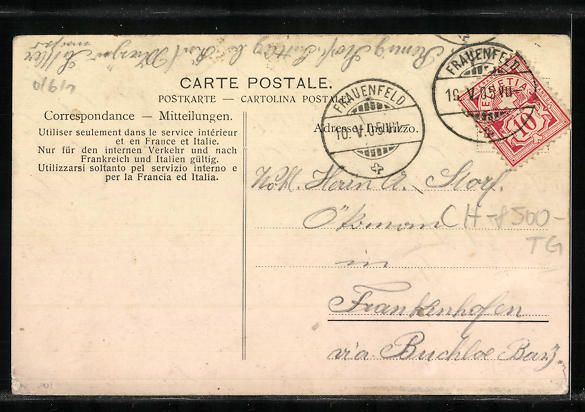 CARTE POSTALE.
POSTKARTE — CARTOLINA POSTALE
Correspondance — Mitteilungen.
Utiliser seulement dans le service intérieur
et en France et Italie.
Nur für den internen Verkehr und nach
Frankreich und Italien gültig.
Utilizzarsi soltanto pel servizio interno e
per la Francia ed Italia.
Adresse. Indirizzo.
FRAUENFELD
10. V. 05
FRAUENFELD
10. V. 05 VII
HELVETIA
10
Herrn A. Storf.
Ökonom
CH-8500-
TG
in
Frankenhofen
via Buchloe